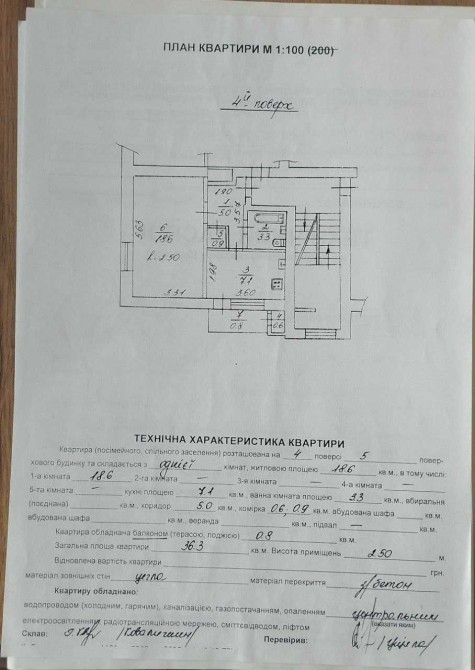 ПЛАН КВАРТИРИ М 1:100 (200)
4й поверх
1.90
1
5.0
3.57
5.63
6
18.6
h=2.50
3.31
5
0.9
2
3.3
1.98
3
7.1
3.60
7
0.8
4
0.6
ТЕХНІЧНА ХАРАКТЕРИСТИКА КВАРТИРИ
Квартира (посімейного, спільного заселення) розташована на 4 поверсі 5 повер-
хового будинку та складається з однієї кімнат, житловою площею 18.6 кв.м., в тому числі
1-а кімната 18.6 2-га кімната — 3-я кімната — 4-а кімната —
5-та кімната — кухні площею 7.1 кв.м., ванна кімната площею 3.3 кв.м., вбиральня
(поєднана) кв.м., коридор 5.0 кв.м., комірка 0.6, 0.9 кв.м. вбудована шафа
вбудована шафа кв.м., веранда кв.м., підвал — кв.м.
Квартира обладнана балконом (терасою, лоджією) 0.8 кв.м.
Загальна площа квартири 36.3 кв.м. Висота приміщень 2.50 м.
Відновна вартість квартири грн.
матеріал зовнішніх стін цегла матеріал перекриття з/бетон
Квартиру обладнано:
водопроводом (холодним, гарячим), каналізацією, газопостачанням, опаленням центральним
(вказати яким)
електроосвітленням, радіотрансляційною мережею, сміттєвідводом, ліфтом
Склав: Перевірив: